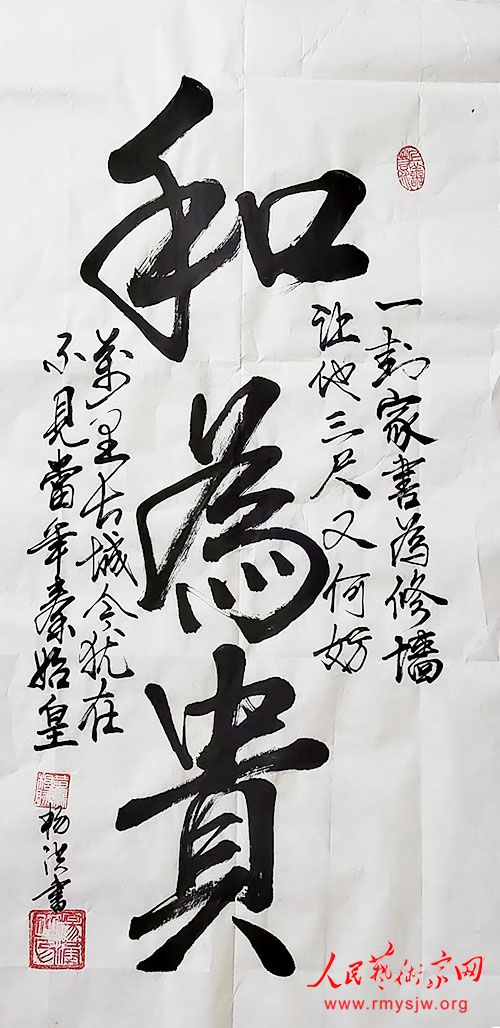 和為貴
一封家書為修墻
让他三尺又何妨
萬里长城今犹在
不見當年秦始皇
杨洪書
人民藝術家网
www.rmysjw.org